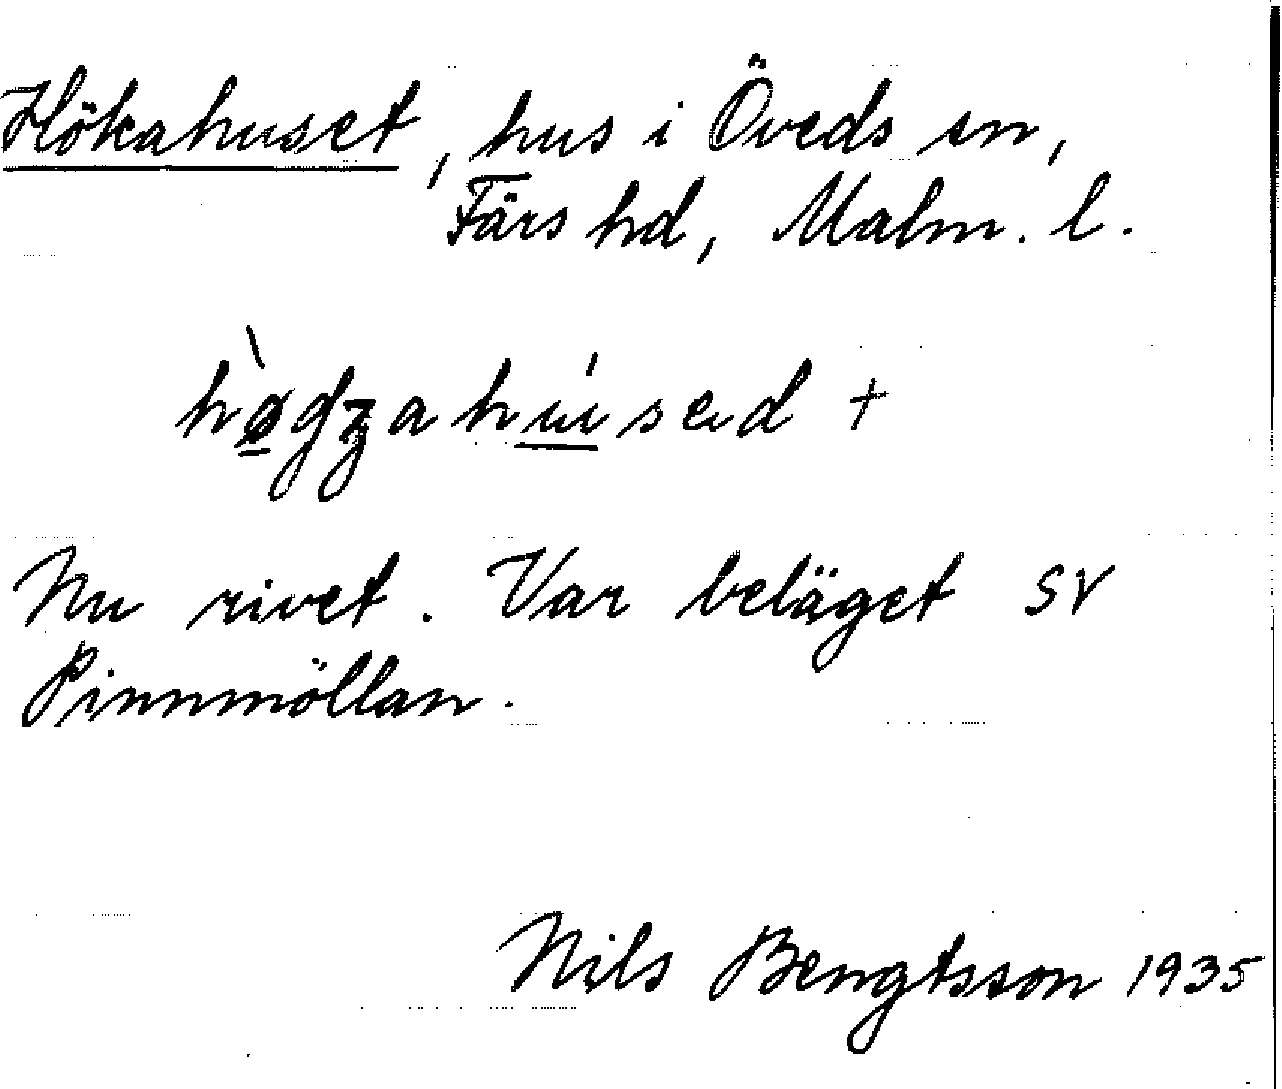 Hökahuset, hus i Öveds sn,
Färs hd, Malm. l.
Nu rivet. Var beläget SV
Pinnmöllan.
Nils Bengtsson 1935